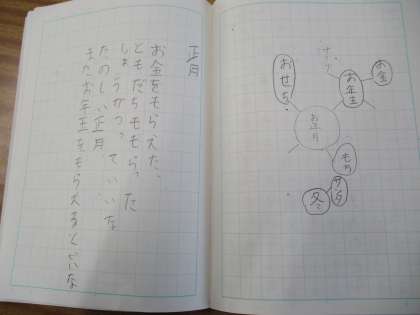 正月
お金をもらえた、
ともだちももらった
しょうがつっていいな
たのしい正月、
またお年玉をもらえるといいな
お正月
お年玉
お金
おせち
もち
冬